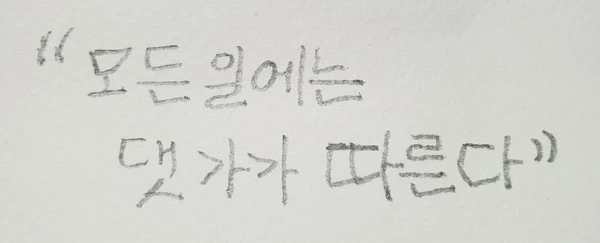 “모든 일에는
댓가가 따른다”